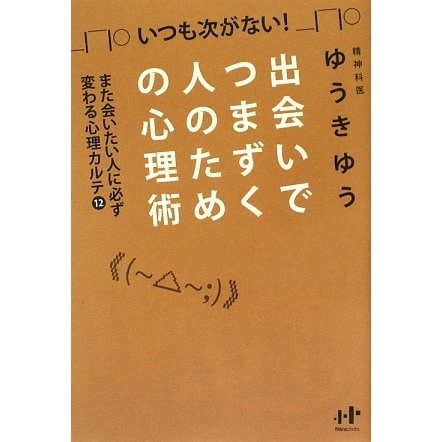 _┌┐○ いつも次がない! _┌┐○
精神科医
ゆうきゆう
出会いで
つまずく
人のため
の心理術
また会いたい人に必ず
変わる心理カルテ⓬
《(~△~;)》
Nanaブックス